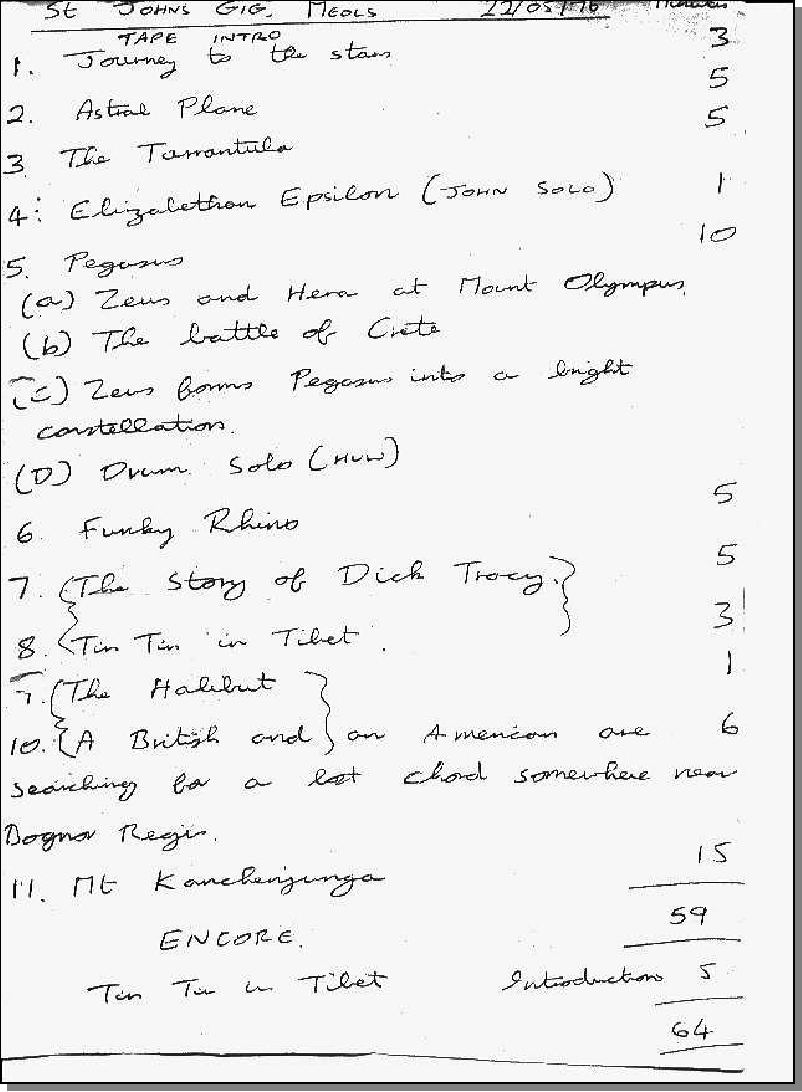 St JOHNS GIG, MEOLS 22/05/76 Minutes
TAPE INTRO 3
1. Journey to the stars
5
2. Astral Plane
5
3 The Tarrantula
4: Elizabethan Epsilon (JOHN SOLO) 1
10
5. Pegasus
(a) Zeus and Hera at Mount Olympus
(b) The battle of Crete
(c) Zeus forms Pegasus into a bright
constellation.
(D) Drum Solo (HUW)
5
6. Funky Rhino
5
7. {The Story of Dick Tracy.}
3
8. {Tin Tin in Tibet.
1
9. {The Halibut }
10. {A British and } an American are 6
searching for a lost chord somewhere near
Bognor Regis.
15
11. Mt Kanchenjunga
59
ENCORE.
Tin Tin in Tibet Introduction 5
64